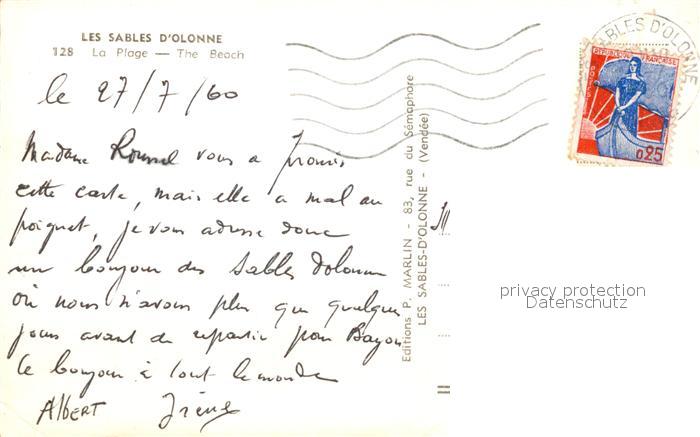 LES SABLES D'OLONNE
128 La Plage — The Beach
le 27/7/60
Madame vous a promis
cette carte, mais elle a mal au
poignet, je vous adresse donc
un bonjour des Sables d'olonne
où nous n'avons plus que quelques
jours avant de repartir pour Bayon
Le bonjour à tout le monde
ALBERT Irène
Editions P. MARLIN - 83, rue du Sémaphore
LES SABLES-D'OLONNE - (Vendée)
SABLES D'OLONNE
REPUBLIQUE FRANÇAISE
POSTES
0,25
privacy protection
Datenschutz